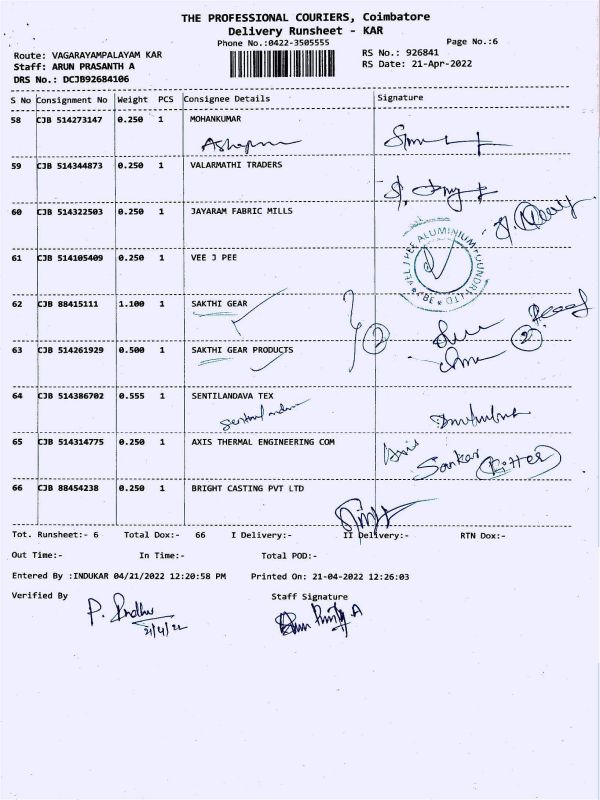 THE PROFESSIONAL COURIERS, Coimbatore
Delivery Runsheet - KAR
Phone No.:0422-3505555
Page No.:6
Route: VAGARAYAMPALAYAM KAR
RS No.: 926841
Staff: ARUN PRASANTH A
RS Date: 21-Apr-2022
DRS No.: DCJB92684106
S No Consignment No Weight PCS Consignee Details Signature
58 CJB 514273147 0.250 1 MOHANKUMAR
59 CJB 514344873 0.250 1 VALARMATHI TRADERS
60 CJB 514322503 0.250 1 JAYARAM FABRIC MILLS
61 CJB 514105409 0.250 1 VEE J PEE
VEE J PEE ALUMINIUM FOUNDRY LTD CBE
62 CJB 88415111 1.100 1 SAKTHI GEAR
2 2
63 CJB 514261929 0.500 1 SAKTHI GEAR PRODUCTS
64 CJB 514386702 0.555 1 SENTILANDAVA TEX
65 CJB 514314775 0.250 1 AXIS THERMAL ENGINEERING COM
Axis
Sankar
66 CJB 88454238 0.250 1 BRIGHT CASTING PVT LTD
Tot. Runsheet:- 6 Total Dox:- 66 I Delivery:- II Delivery:- RTN Dox:-
Out Time:- In Time:- Total POD:-
Entered By :INDUKAR 04/21/2022 12:20:58 PM Printed On: 21-04-2022 12:26:03
Verified By Staff Signature
21/4/22